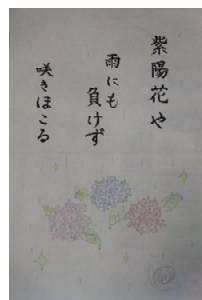 紫陽花や
雨にも
負けず
咲きほこる